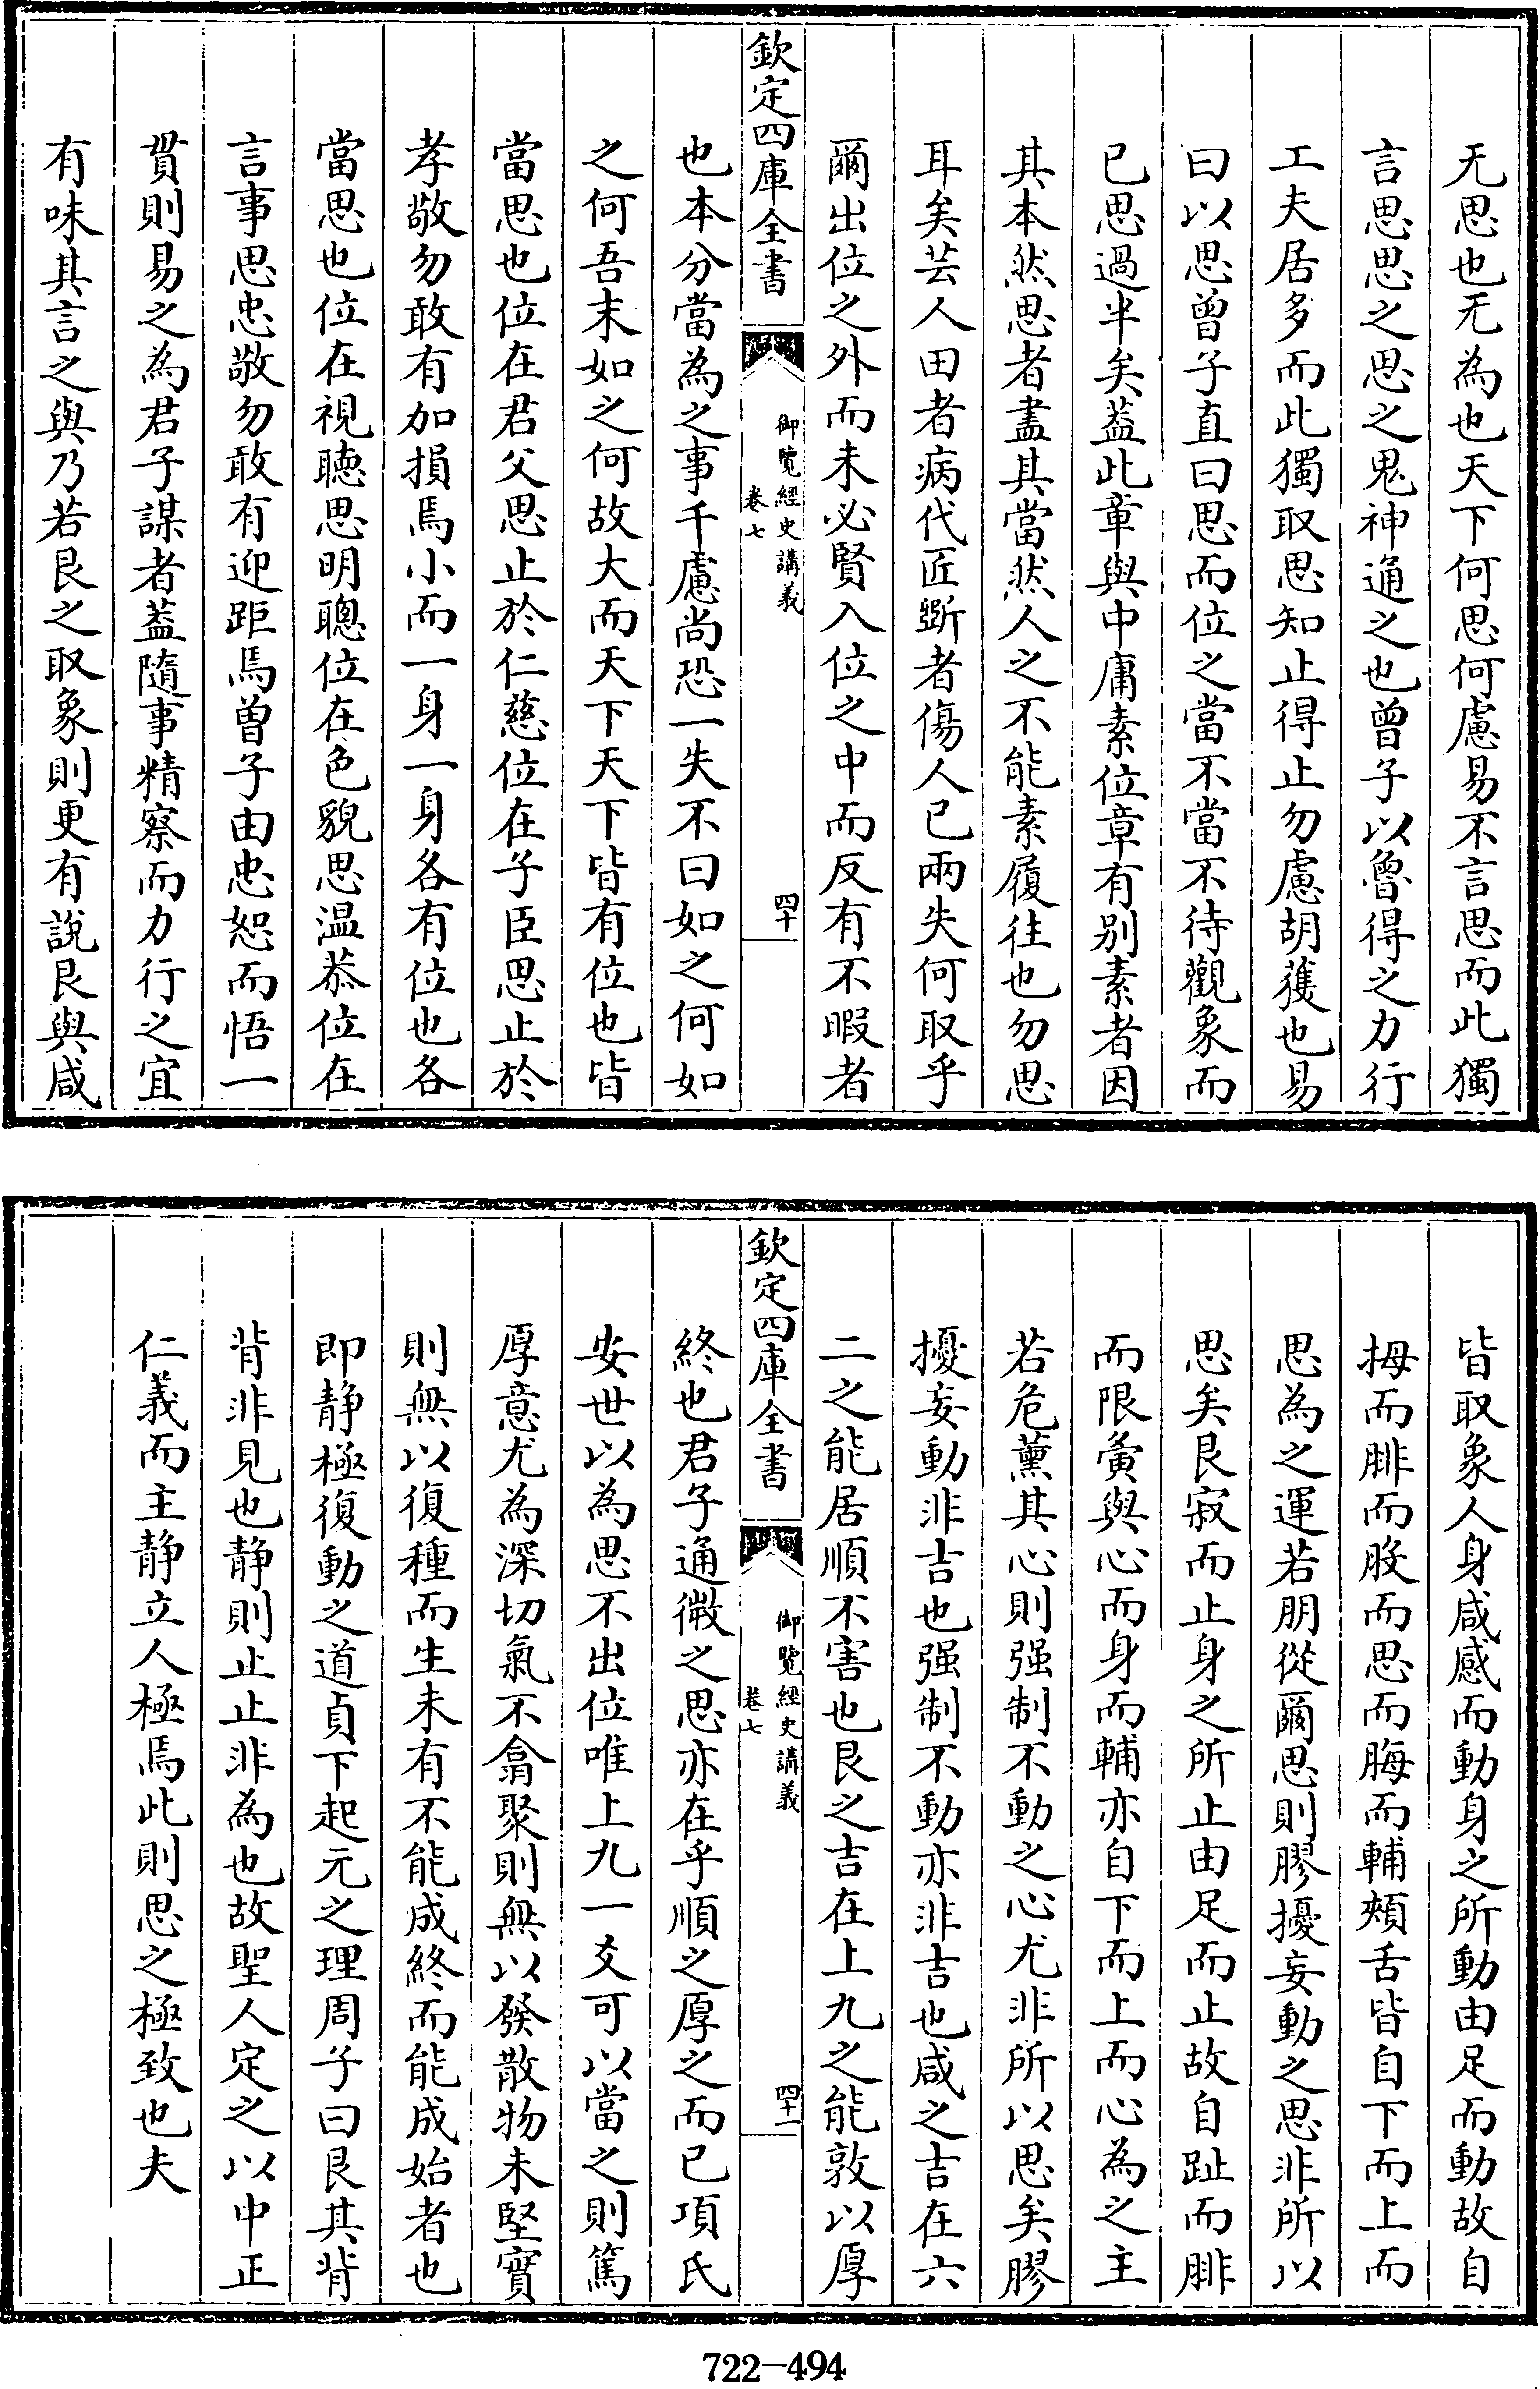 无思也无為也天下何思何慮易不言思而此獨
言思思之思之鬼神通之也曾子以魯得之力行
工夫居多而此獨取思知止得止勿慮胡獲也易
曰以思曾子直曰思而位之當不當不待觀象而
已思過半矣葢此章與中庸素位章有别素者因
其本然思者盡其當然人之不能素履往也勿思
耳矣芸人田者病代匠斵者傷人已兩失何取乎
爾出位之外而未必賢入位之中而反有不暇者
欽定四庫全書
御覽經史講義
卷七
四十
也本分當為之事千慮尚恐一失不曰如之何如
之何吾末如之何故大而天下天下皆有位也皆
當思也位在君父思止於仁慈位在子臣思止於
孝敬勿敢有加損焉小而一身一身各有位也各
當思也位在視聽思明聰位在色貌思温恭位在
言事思忠敬勿敢有迎距焉曽子由忠恕而悟一
貫則易之為君子謀者葢隨事精察而力行之宜
有味其言之與乃若艮之取象則更有說艮與咸
皆取象人身咸感而動身之所動由足而動故自
拇而腓而股而思而脢而輔頰舌皆自下而上而
思為之運若朋從爾思則膠擾妄動之思非所以
思矣艮寂而止身之所止由足而止故自趾而腓
而限夤與心而身而輔亦自下而上而心為之主
若危薰其心則强制不動之心尤非所以思矣膠
擾妄動非吉也强制不動亦非吉也咸之吉在六
二之能居順不害也艮之吉在上九之能敦以厚
欽定四庫全書
御覽經史講義
卷七
四十一
終也君子通微之思亦在乎順之厚之而已項氏
安世以為思不出位唯上九一爻可以當之則篤
厚意尤為深切氣不翕聚則無以發散物未堅實
則無以復種而生未有不能成終而能成始者也
即静極復動之道貞下起元之理周子曰艮其背
背非見也静則止止非為也故聖人定之以中正
仁義而主静立人極焉此則思之極致也夫
722-494